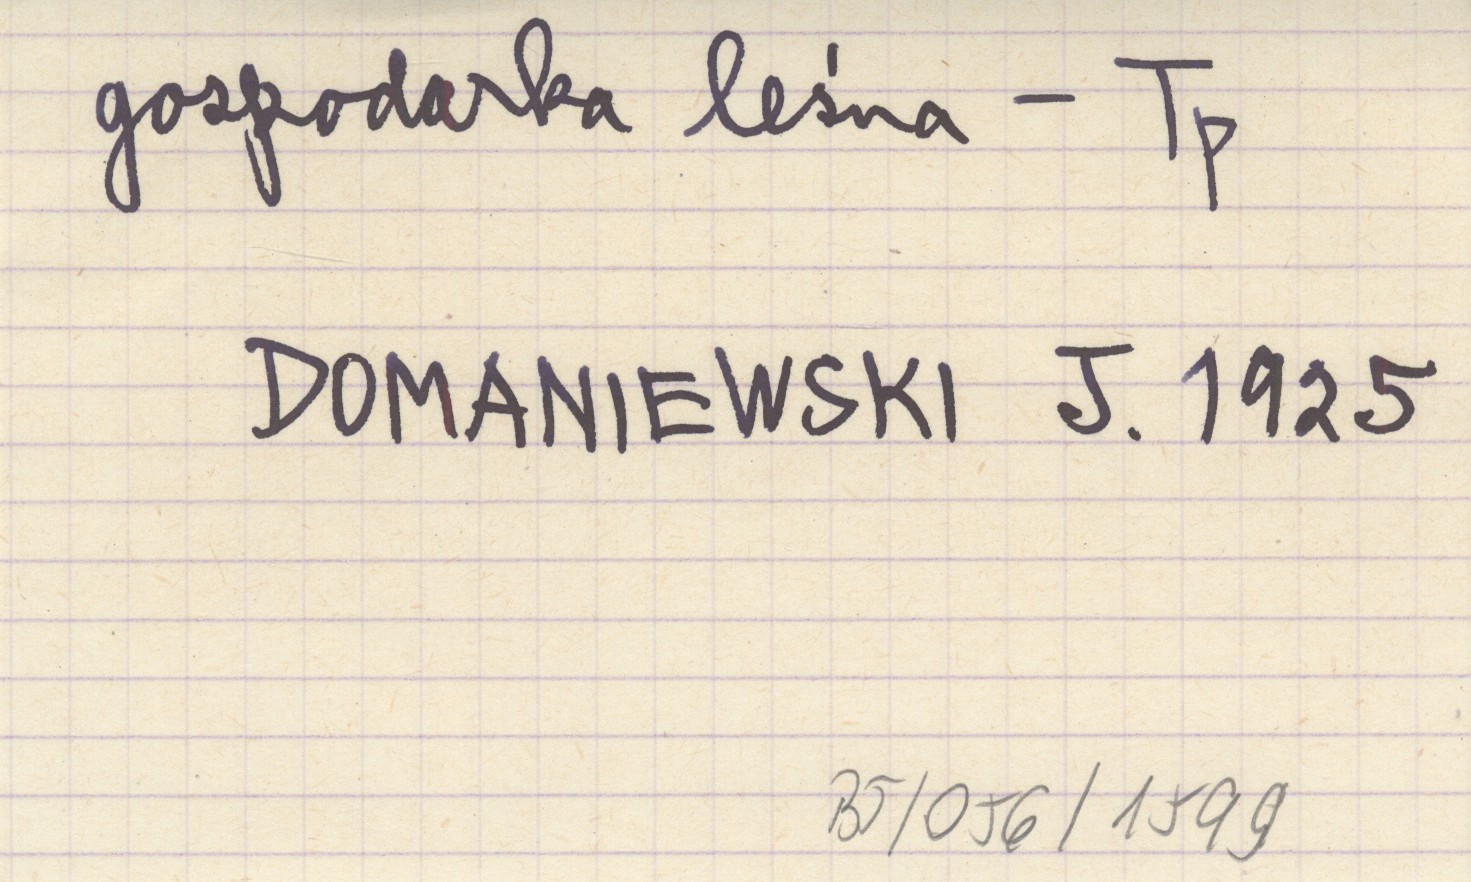 gospodarka leśna - Tp
DOMANIEWSKI J. 1925
B5/056/1599